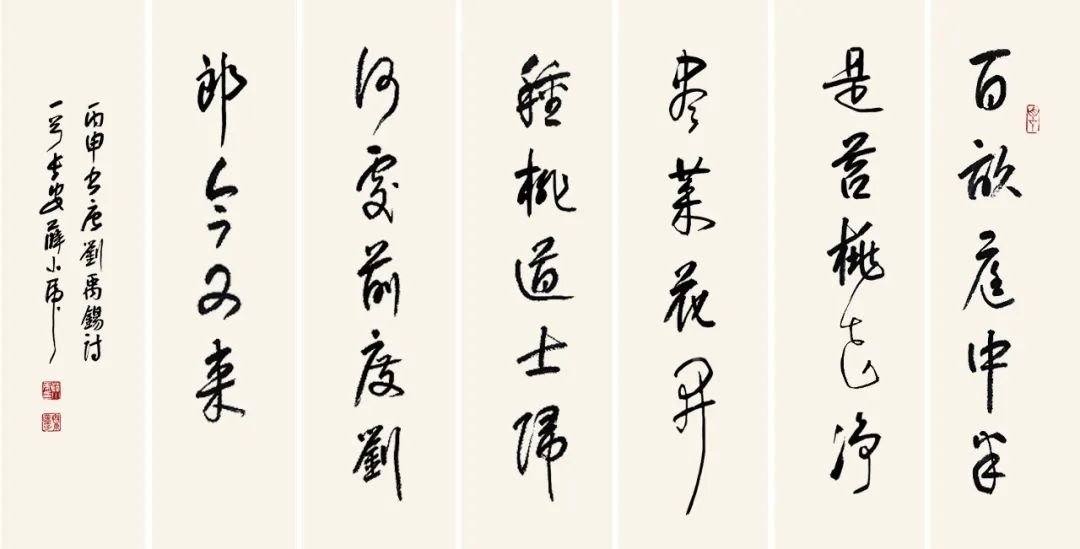 百畝庭中半
是苔桃花净
盡菜花開
種桃道士歸
何處前度劉
郎今又来
丙申书唐劉禹錫詩
一首長安薛小虎